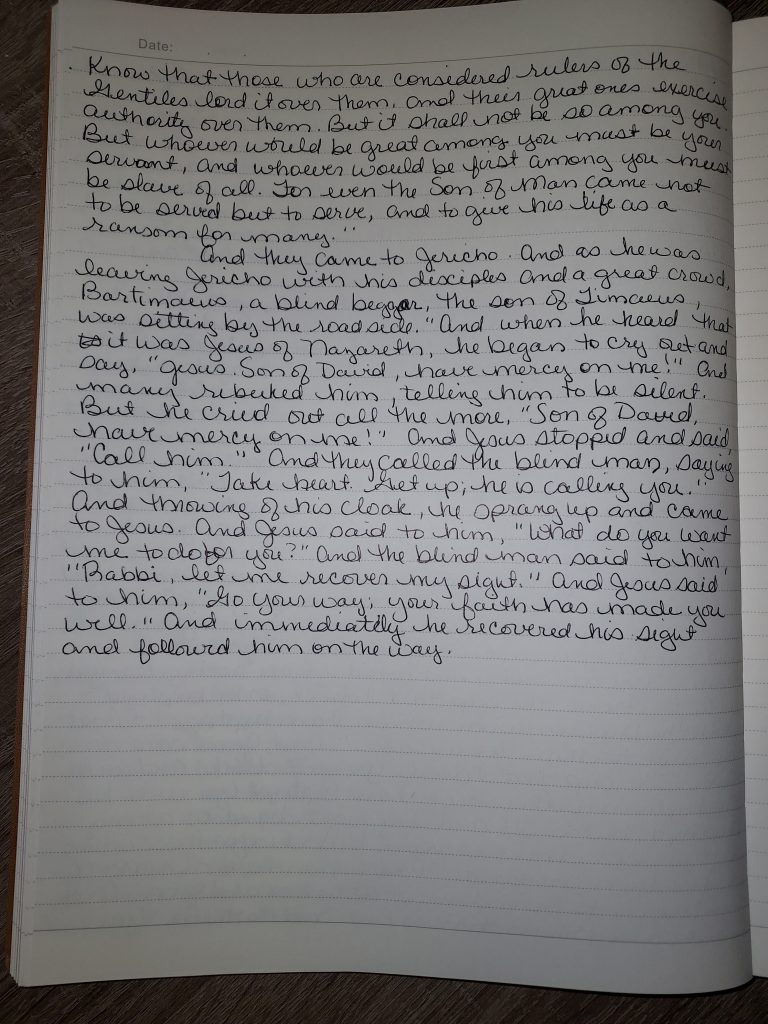 Date:
Know that those who are considered rulers of the
Gentiles lord it over them, and their great ones exercise
authority over them. But it shall not be so among you.
But whoever would be great among you must be your
servant, and whoever would be first among you must
be slave of all. For even the Son of Man came not
to be served but to serve, and to give his life as a
ransom for many."
And they came to Jericho. And as he was
leaving Jericho with his disciples and a great crowd,
Bartimaeus, a blind beggar, the son of Timaeus,
was sitting by the roadside. "And when he heard that
it was Jesus of Nazareth, he began to cry out and
say, "Jesus. Son of David, have mercy on me!" And
many rebuked him, telling him to be silent.
But he cried out all the more, "Son of David,
have mercy on me!" And Jesus stopped and said,
"Call him." And they called the blind man, saying
to him, "Take heart. Get up; he is calling you."
And throwing of his cloak, he sprang up and came
to Jesus. And Jesus said to him, "What do you want
me to do for you?" And the blind man said to him,
"Rabbi, let me recover my sight." And Jesus said
to him, "Go your way; your faith has made you
well." And immediately he recovered his sight
and followed him on the way.